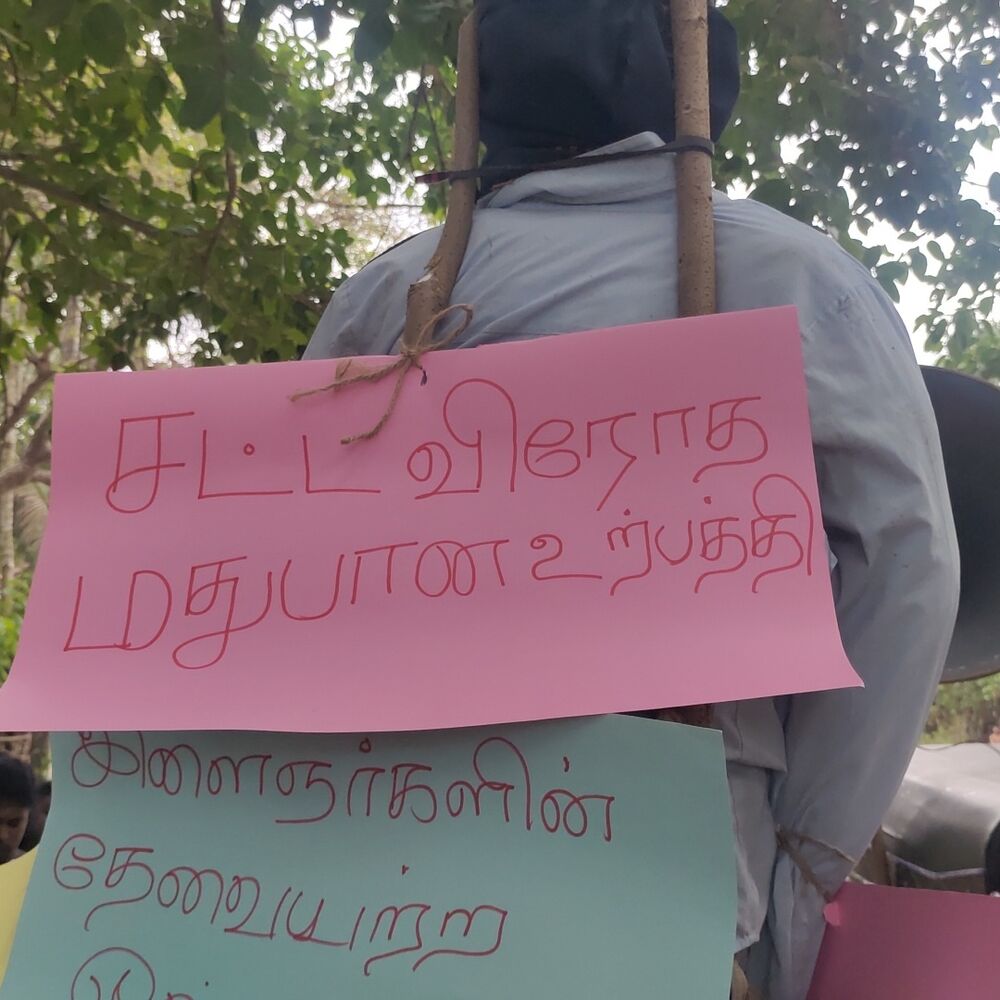 சட்ட விரோத
மதுபான உற்பத்தி
இளைஞர்களின்
தேவையற்ற